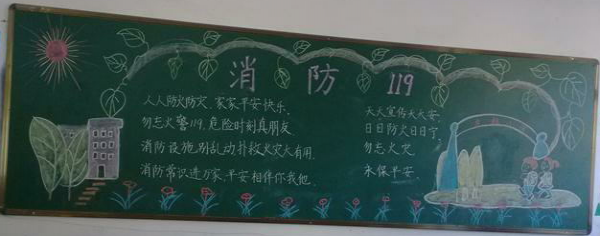 消防 119
人人防火防灾、家家平安快乐、
勿忘火警119、危险时刻真朋友
消防设施别乱动扑救火灾大有用
消防常识进万家、平安相伴你我他、
天天宣传天天安、
日日防火日日宁、
勿忘火灾、
永保平安